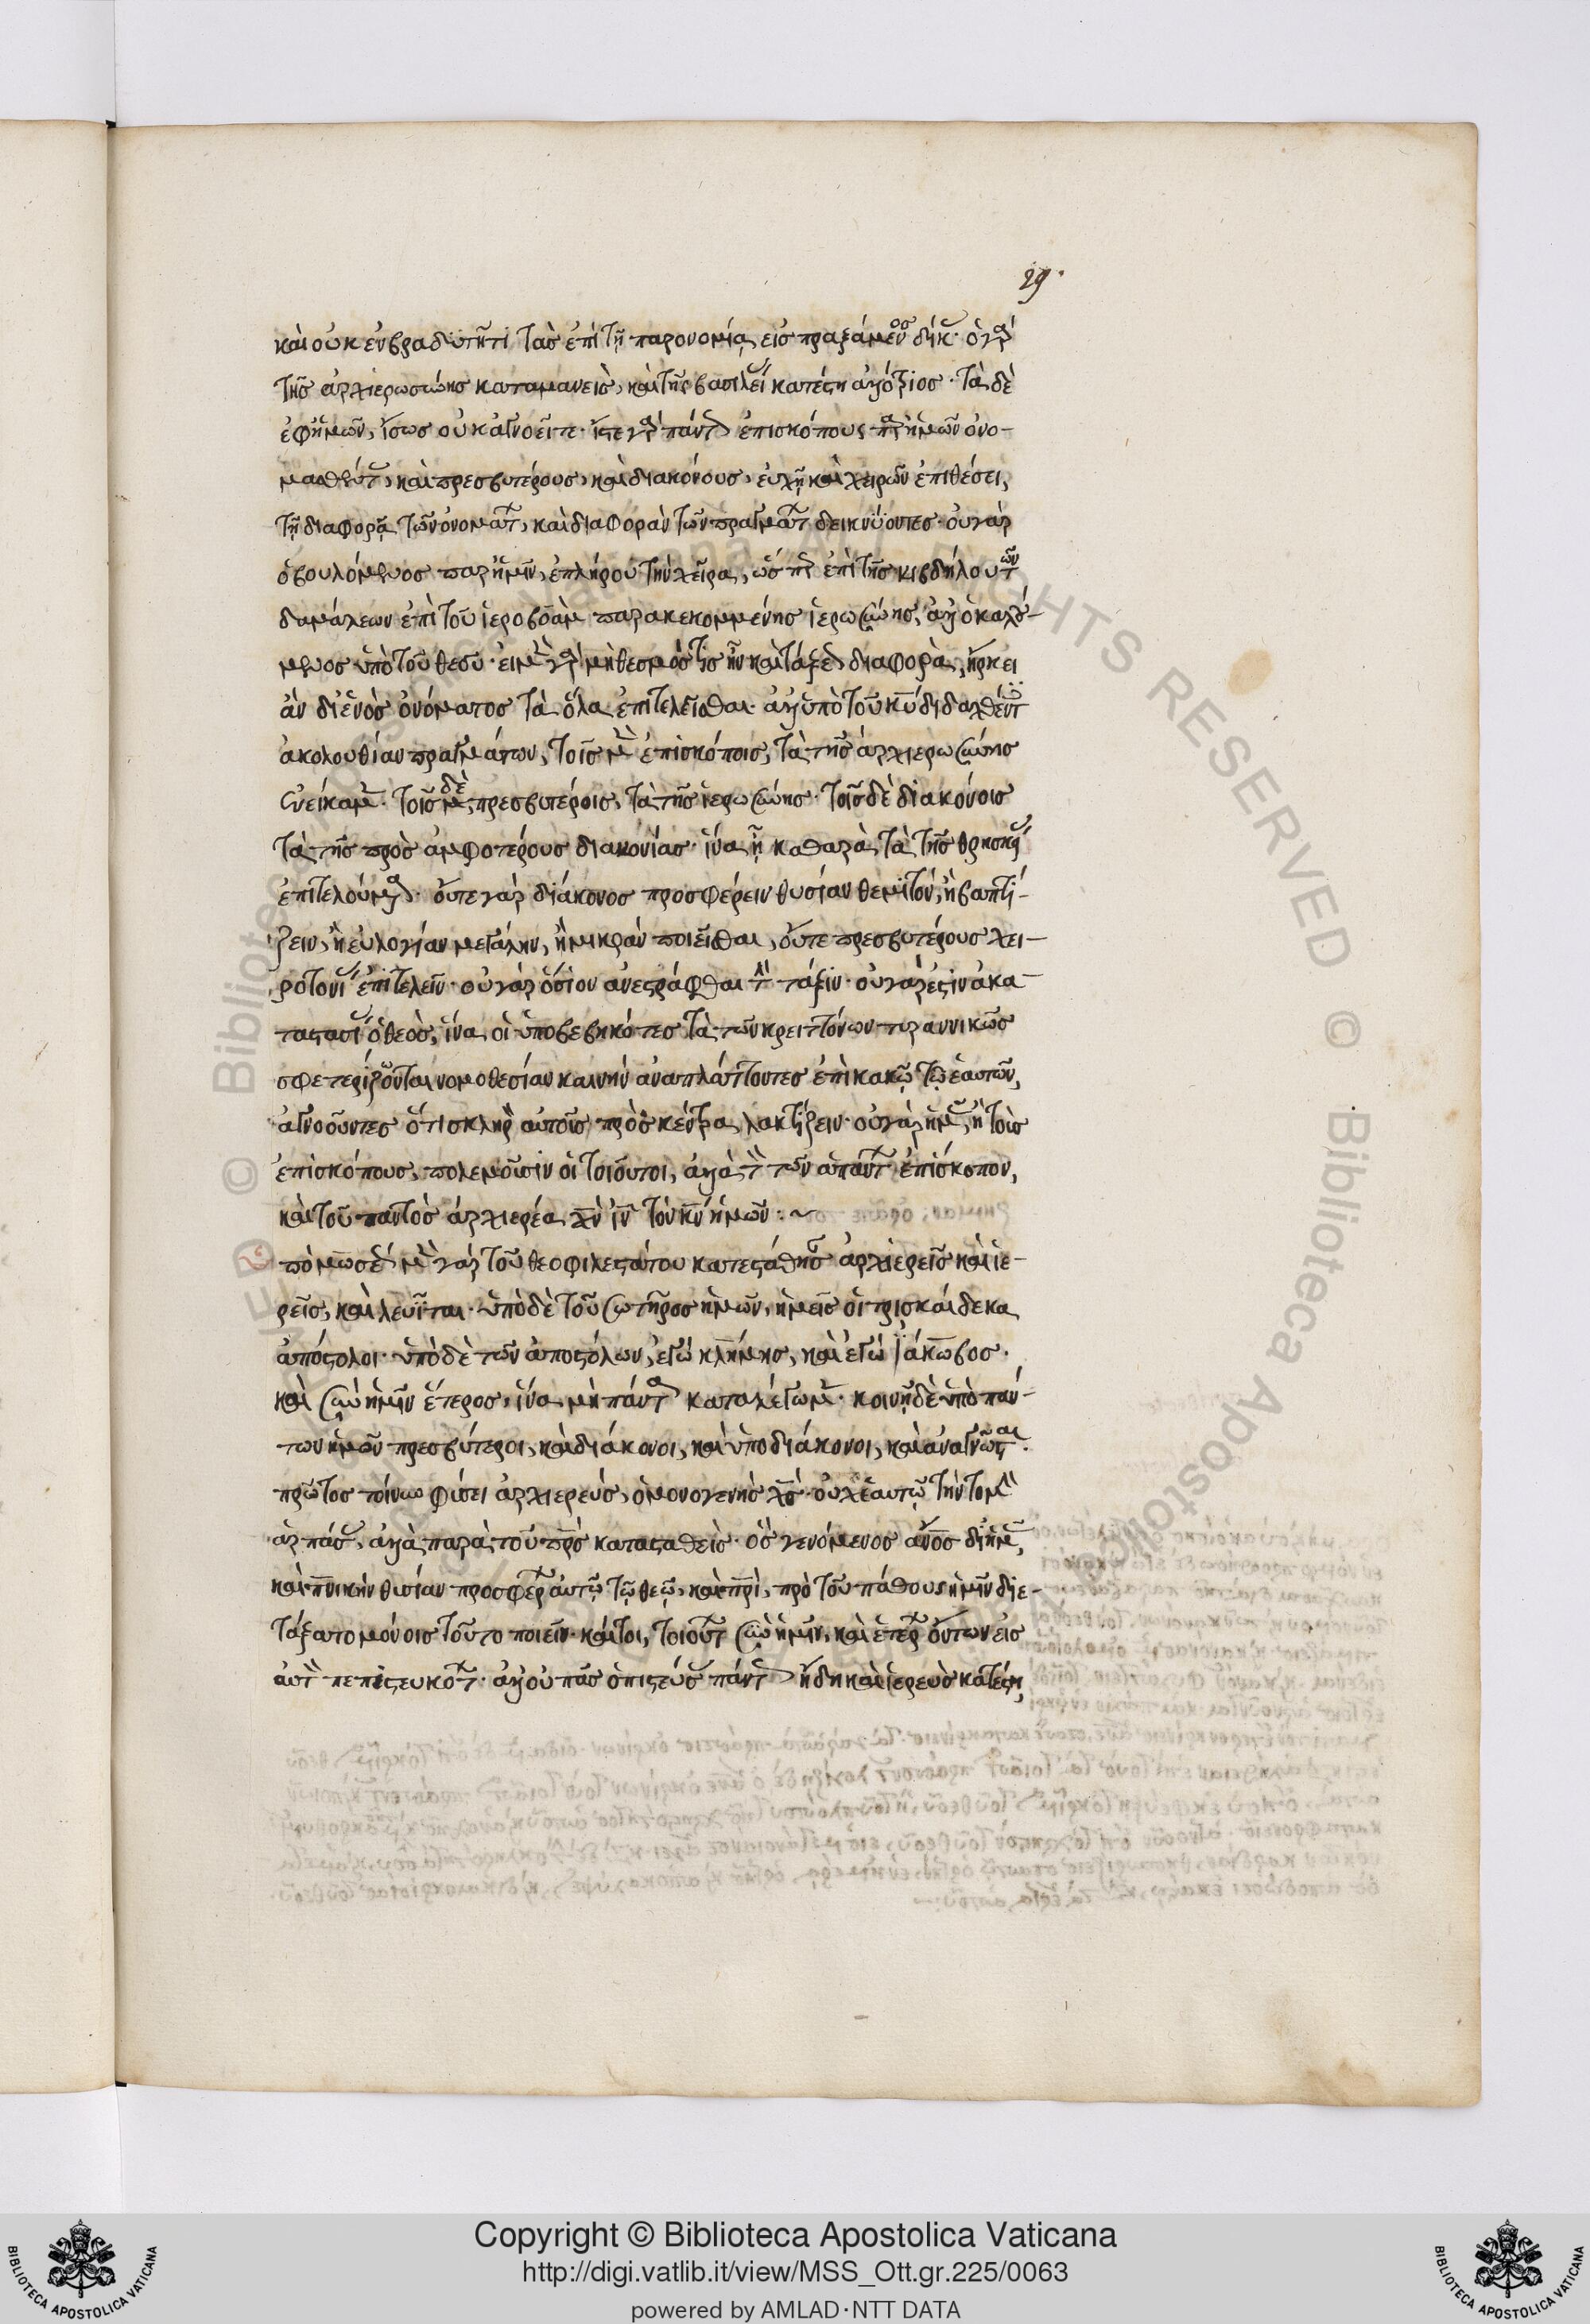 29.
καὶ οὐκ ἐν βραδυτῆτι τὰς ἐπὶ τῇ παρονομίᾳ εἰσπραξάμενον δίκ· ὁ γὰρ
τῆς ἀρχιερωσύνης καταμανεὶς, καὶ τῆς βασιλεί κατέστη ἀλλότριος· τὰ δὲ
ἐφ ἡμῶν, ἴσως οὐκ ἀγνοεῖτε· ἴστε γὰρ πάντ ἐπισκόπους παρ ἡμῶν ὀνο-
μασθέντ, καὶ πρεσβυτέρους, καὶ διακόνους, εὐχῇ καὶ χειρῶν ἐπιθέσει,
τῇ διαφορᾷ τῶν ὀνομάτ, καὶ διαφορὰν τῶν πραγμάτ δεικνύοντες· οὐ γὰρ
ὁ βουλόμενος παρ ἡμῖν, ἐπλήρου τὴν χεῖρα, ὥσπερ ἐπὶ τῆς κιβδήλου τῶν
δαμάλεων ἐπὶ τοῦ ἱεροβοὰμ παρακεκομμένης ἱερωσύνης, ἀλλ ὁ καλού-
μενος ὑπὸ τοῦ θεοῦ· εἰ μὲν γὰρ μὴ θεσμός τις ἦν καὶ τάξεων διαφορὰ, ἤρκει
ἂν δι ἑνὸς ὀνόματος τὰ ὅλα ἐπιτελεῖσθαι· ἀλλ ὑπὸ τοῦ κυ διδαχθέντ
ἀκολουθίαν πραγμάτων, τοῖς μὲν ἐπισκόποις, τὰ τῆς ἀρχιερωσύνης
ἐνείκαμεν· τοῖς δὲ πρεσβυτέροις, τὰ τῆς ἱερωσύνης· τοῖς δὲ διακόνοις
τὰ τῆς πρὸς ἀμφοτέρους διακονίας· ἵνα ᾖ καθαρὰ τὰ τῆς θρησκεί
ἐπιτελούμενα· οὔτε γὰρ διάκονος προσφέρειν θυσίαν θεμιτόν, ἢ βαπτί-
ζειν, ἢ εὐλογίαν μεγάλην, ἢ μικρὰν ποιεῖσθαι, οὔτε πρεσβυτέρους χει-
ροτονί ἐπιτελεῖν· οὐ γὰρ ὅσιον ἀνεστράφθαι τὴν τάξιν· οὐ γάρ ἐστιν ἀκα-
ταστασί ὁ θεὸς, ἵνα οἱ ὑποβεβηκότες τὰ τῶν κρειττόνων τυραννικῶς
σφετερίζονται νομοθεσίαν καινὴν ἀναπλάττοντες ἐπὶ κακῷ τῷ ἑαυτῶν,
ἀγνοοῦντες ὅτι σκληρ αὐτοῖς πρὸς κέντρα λακτίζειν· οὐ γὰρ ἡμ, ἢ τοὶς
ἐπισκόπους, πολεμοῦσιν οἱ τοιοῦτοι, ἀλλὰ τὸν τῶν ἁπάντ ἐπίσκοπον,
καὶ τοῦ παντὸς ἀρχιερέα χν ιν τὸν κν ἡμῶν :~
πὸ μωσέ μὲν γὰρ τοῦ θεοφιλεστάτου κατεστάθησ ἀρχιερεῖς καὶ ἱε-
ρεῖς, καὶ λευῖται· ὑπὸ δὲ τοῦ σωτῆρος ἡμῶν, ἡμεῖς οἱ τρισκαίδεκα
ἀπόστολοι· ὑπὸ δὲ τῶν ἀποστόλων, ἐγὼ κλήμης, καὶ ἐγὼ ἰάκωβος·
καὶ σὺν ἡμῖν ἕτεροι, ἵνα μὴ πάντ καταλέγωμ· κοινῇ δὲ ὑπὸ πάν-
των ἡμῶν πρεσβύτεροι, καὶ διάκονοι, καὶ ὑποδιάκονοι, καὶ ἀναγνῶσται·
πρῶτος τοίνυν φύσει ἀρχιερεὺς, ὁ μονογενὴς χς· οὐχ ἑαυτῷ τὴν τομὴν
ἁρπάσ, ἀλλὰ παρὰ τοῦ πρς κατασταθείς· ὃς γενόμενος ανος δι ἡμ,
καὶ πνικὴν θυσίαν προσφέρ αὐτῷ τῷ θεῷ, καὶ πρὶ, πρὸ τοῦ πάθους ἡμῖν διε-
τάξατο μόνοις τοῦτο ποιεῖν· καίτοι, τοιούτ σὺν ἡμῖν, καὶ ἑτέρ ὄντων εἰς
αὐτὸν πεπιστευκότ· ἀλλ οὐ πᾶς ὁ πιστεύσ πάντ ἤδη καὶ ἱερεὺς κατέστη,
Copyright © Biblioteca Apostolica Vaticana
http://digi.vatlib.it/view/MSS_Ott.gr.225/0063
powered by AMLAD·NTT DATA